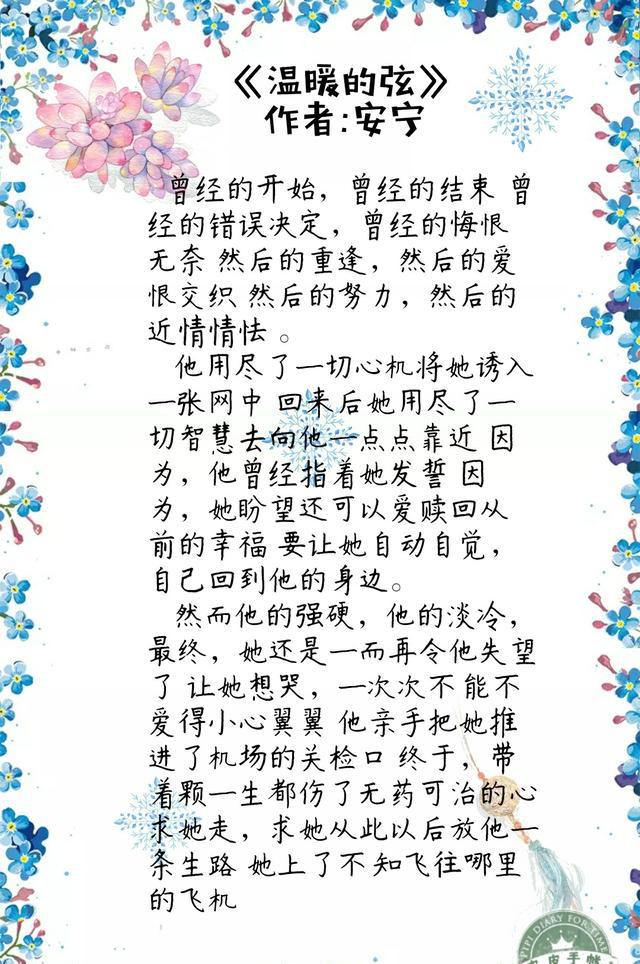 《温暖的弦》
作者:安宁
曾经的开始，曾经的结束 曾
经的错误决定，曾经的悔恨
无奈 然后的重逢，然后的爱
恨交织 然后的努力，然后的
近情情怯 。
他用尽了一切心机将她诱入
一张网中 回来后她用尽了一
切智慧去向他一点点靠近 因
为，他曾经指着她发誓 因
为，她盼望还可以爱赎回从
前的幸福 要让她自动自觉，
自己回到他的身边。
然而他的强硬，他的淡冷，
最终，她还是一而再令他失望
了 让她想哭，一次次不能不
爱得小心翼翼 他亲手把她推
进了机场的关检口 终于，带
着颗一生都伤了无药可治的心
求她走，求她从此以后放他一
条生路 她上了不知飞往哪里
的飞机
PIPI DIARY FOR TIME